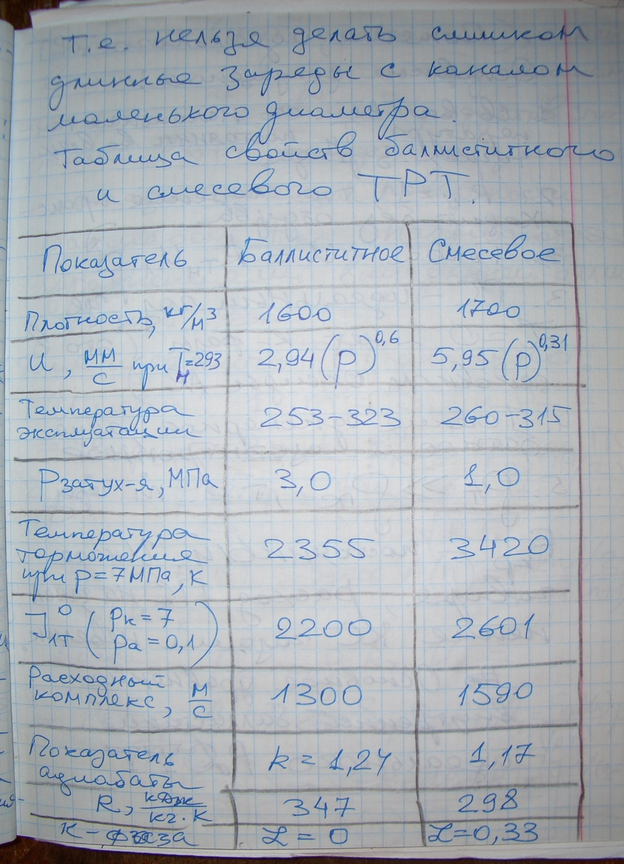 т.е. нельзя делать слишком
длинные заряды с каналом
маленького диаметра.
Таблица свойств баллиститного
и смесевого ТРТ.
Показатель Баллиститное Смесевое
Плотность, кг/м³ 1600 1700
U, мм/с при Tн=293 2,94(p)^0,6 5,95(p)^0,31
Температура
эксплуатации 253-323 260-315
Pзатух-я, МПа 3,0 1,0
Температура
торможения
при p=7МПа, К 2355 3420
J⁰1T (Pк=7
Pa=0,1) 2200 2601
Расходный
комплекс, м/с 1300 1590
Показатель
адиабаты k=1,24 1,17
R, кДж/кг·К 347 298
К-фаза Z=0 Z=0,33